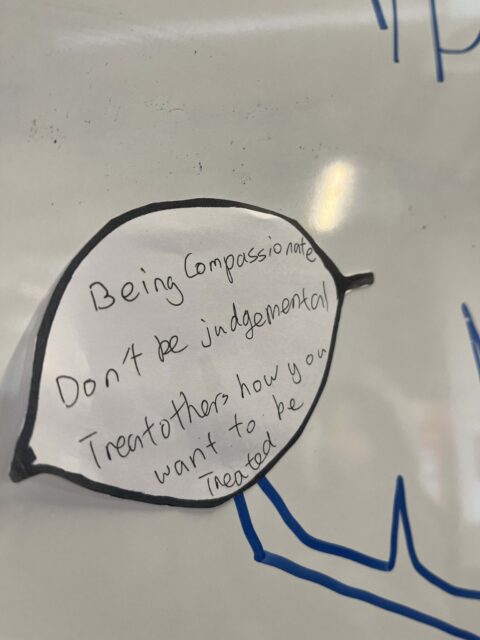 Being Compassionate
Don't be judgemental
Treat others how you
want to be
Treated